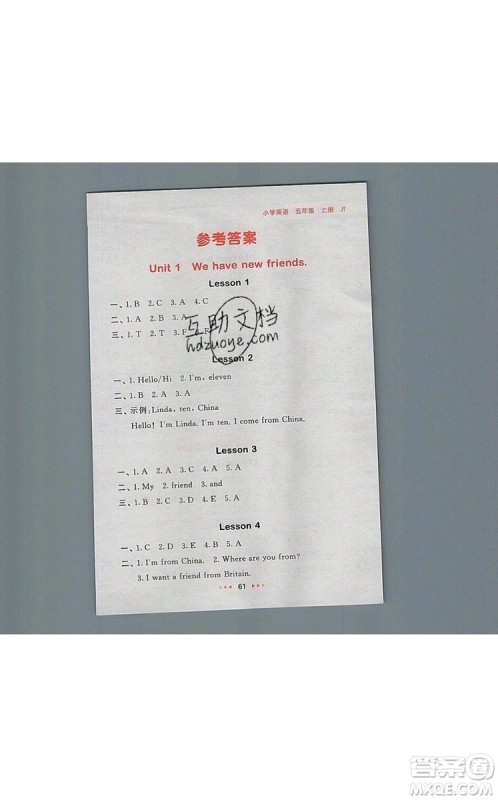 小学英语 五年级 上册 JT
参考答案
Unit 1 We have new friends.
Lesson 1
一、1. B 2. C 3. A 4. C
二、1. A 2. B 3. A
三、1. T 2. T 3. F
互助文档
hdzuoye.com
Lesson 2
一、1. Hello/Hi 2. I'm, eleven
二、1. B 2. A 3. A
三、示例：Linda, ten, China
Hello! I'm Linda. I'm ten. I come from China.
Lesson 3
一、1. A 2. A 3. A 4. B 5. A
二、1. My 2. friend 3. and
三、1. B 2. C 3. D 4. E 5. A
Lesson 4
一、1. C 2. D 3. E 4. B 5. A
二、1. I'm from China. 2. Where are you from?
3. I want a friend from Britain.
61
答案圈
MXQE.COM